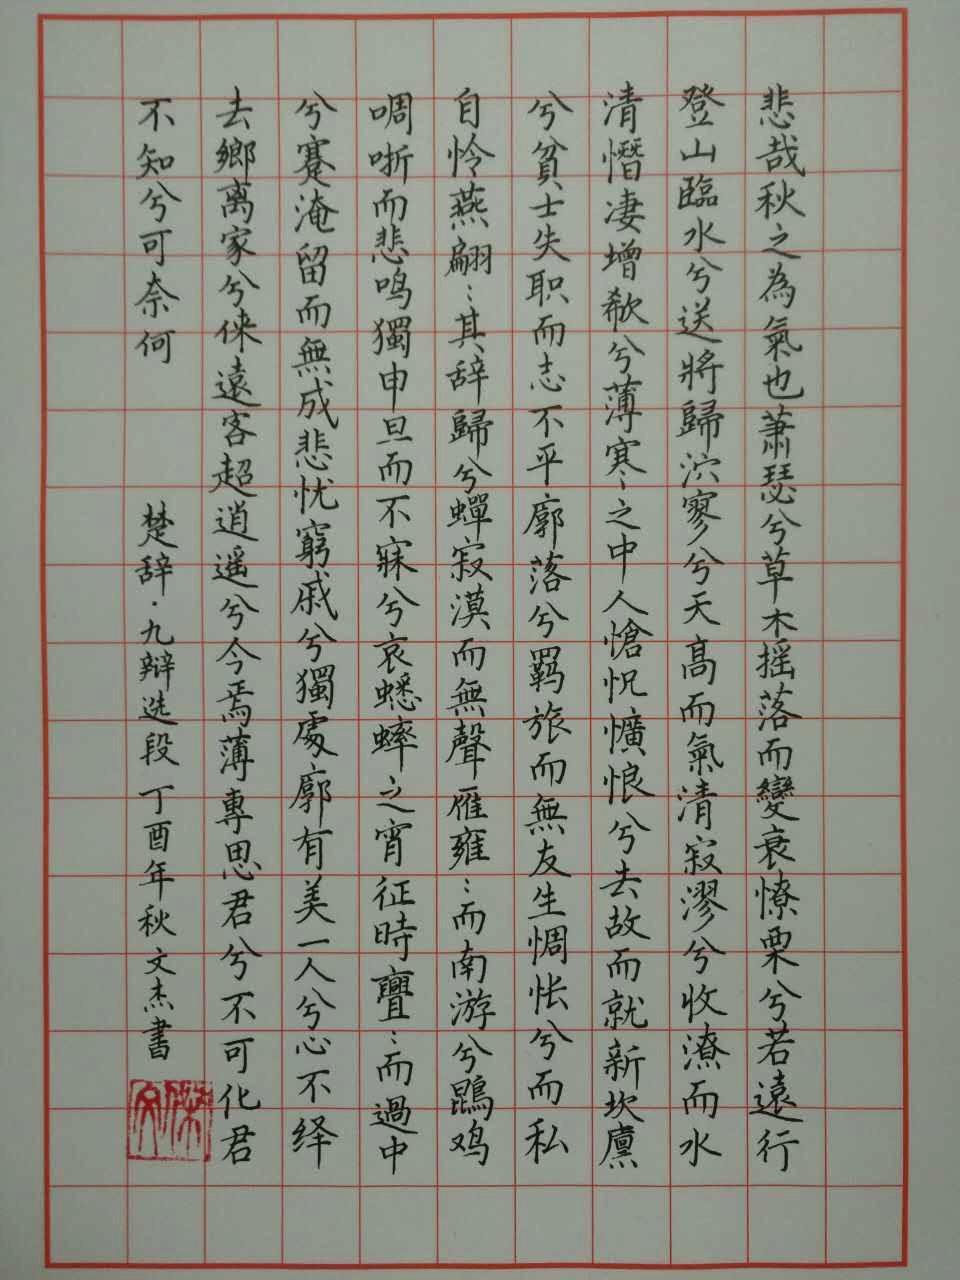 悲哉秋之為氣也蕭瑟兮草木摇落而變衰憭栗兮若遠行
登山臨水兮送將歸泬寥兮天高而氣清寂漻兮收潦而水
清憯凄增欷兮薄寒〻之中人愴怳懭悢兮去故而就新坎廩
兮貧士失职而志不平廓落兮羁旅而無友生惆怅兮而私
自怜燕翩〻其辞歸兮蟬寂漠而無聲雁雍〻而南游兮鵾鸡
啁哳而悲鸣獨申旦而不寐兮哀蟋蟀之宵征時亹〻而過中
兮蹇淹留而無成悲忧窮戚兮獨處廓有美一人兮心不绎
去鄉离家兮倈遠客超逍遥兮今焉薄專思君兮不可化君
不知兮可奈何
楚辞·九辯选段丁酉年秋文杰書
文傑